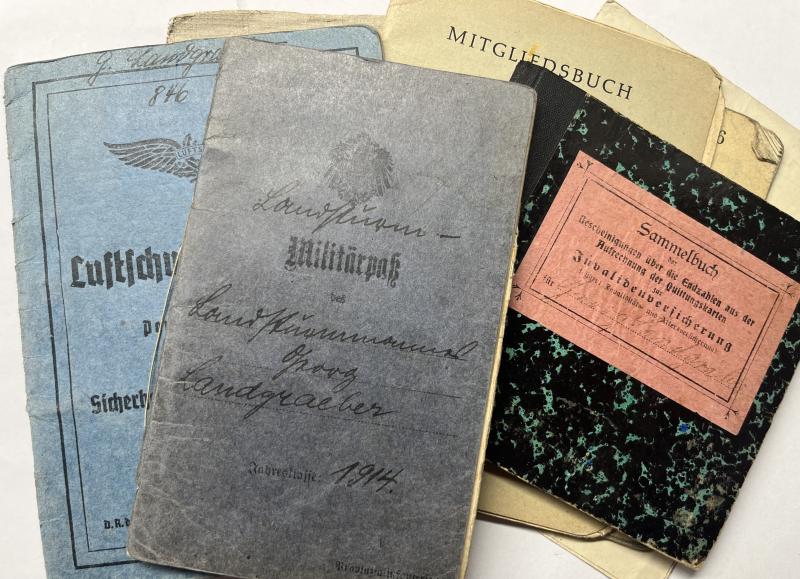 G. Landgra
846
LUFTS
Luftschu
Sicherh
D.R.d
Landsturm-
Militärpaß
des
Landsturmmannes
Georg
Landgraeber
Jahresklasse: 1914.
MITGLIEDSBUCH
6
Sammelbuch
der
Bescheinigungen über die Endzahlen aus der
Aufrechnung der Quittungskarten
zur
Invalidenversicherung
(bezw. Invaliditäts- und Altersversicherung)
für